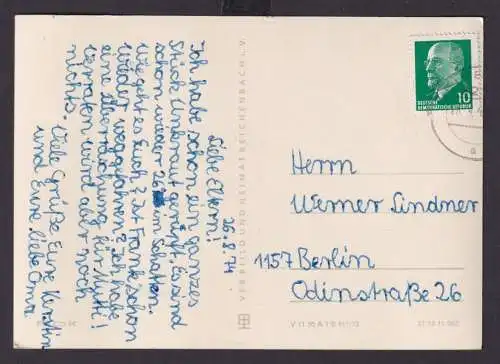 Liebe Eltern!
26.8.71
Ich habe schon ein ganzes
Stück Unkraut gerupft. Es sind
schon wieder 28° im Schatten.
Wie geht es Euch? Ist Frank schon
wieder weggefahren? Ich habe
eine Überraschung für Mutti!
Verraten wird aber noch
nichts.
Viele Grüße Eure Kerstin
und Eure liebe Oma
VERLAG BILD UND HEIMAT REICHENBACH I. V.
DEUTSCHE
DEMOKRATISCHE REPUBLIK
10
Herrn
Werner Lindner
1157 Berlin
Odinstraße 26